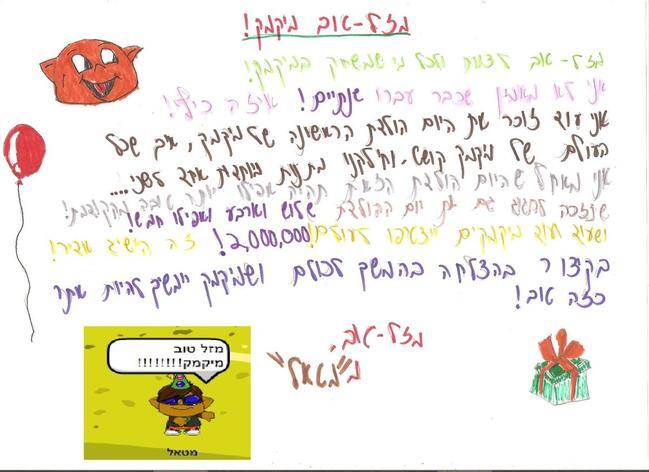 מזל-טוב מיקמק!
מזל-טוב לצוות ולכל מי שמשחק במיקמק!
אני לא מאמין שכבר עברו שנתיים! איזה כיף!
אני עוד זוכר את היום הולדת הראשונה של מיקמק, איך שכל
העולם של מיקמק קושט, וחילקנו מתנות מיוחדות אחד לשני....
אני מאחל שהיום הולדת הזאת תהיה אפילו יותר טובה מהקודמת!
שנזכה לחגוג גם את יום ההולדת שלוש וארבע ואפילו חמש!
ושעוד ועוד מיקמקים יצטרפו לעולם! 2,000,000! זה הישג אדיר!
בקיצור בהצלחה בהמשך לכולם ושמיקמק ימשיך להיות אתר
כזה טוב!
מזל-טוב,
מ"מטאל"
מזל טוב
מיקמק!!!!!!!!
מטאל